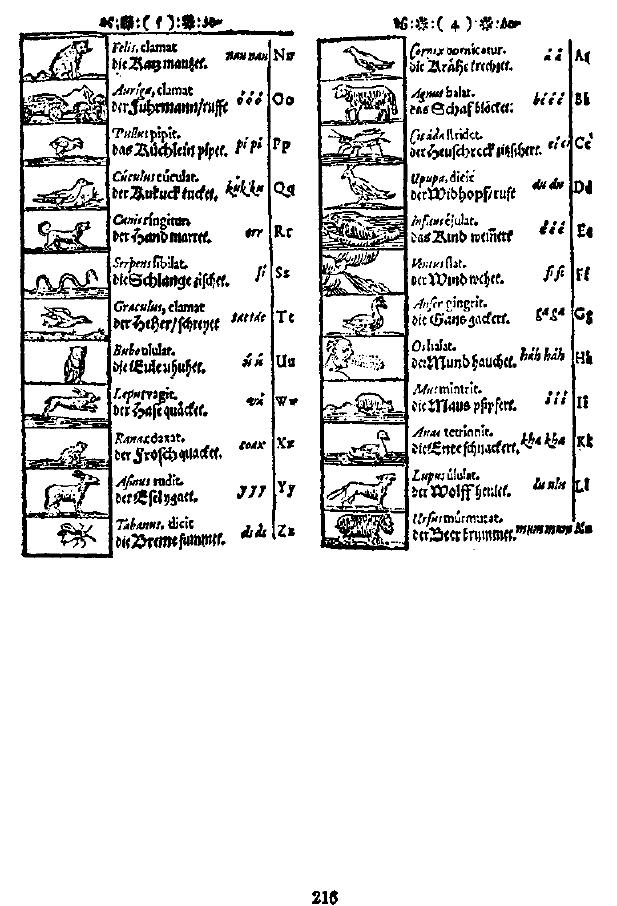 ( 5 )
Felis, clamat
die Katz mautzet. nau nau Nn
Auriga, clamat
der Fuhrmann/rufft ó ó ó Oo
Pullus pipit.
das Küchlein pipet. pi pi Pp
Cuculus cuculat.
der Kukuck kucket. Qq
Canis ringitur.
der Hund marret. err Rr
Serpens sibilat.
die Schlange zischet. si Ss
Graculus, clamat
der Heher/schreyet tac tac Tt
Bubo ululat.
die Eule uhuhet. ú ú Uu
Lepus vagit.
der Hase quäcket. vá Ww
Rana coaxat.
der Frosch quacket. coax Xx
Asinus rudit.
der Esel ygaet. y y y Yy
Tabanus, dicit
die Breme summet. ds ds Zz
( 4 )
Cornix cornicatur.
die Krähe krechzet. á á Aa
Agnus balat.
das Schaf blöcket. bé é é Bb
Cicada stridet.
der Heuschreck zitschert. ci ci Cc
Upupa, dicit
der Widhopf/ruft du du Dd
Infans ejulat.
das Kind weinert é é é Ee
Ventus flat.
der Wind wehet. fi fi Ff
Anser gingrit.
die Gans gackert. ga ga Gg
Os halat.
der Mund hauchet. háh háh Hh
Mus mintrit.
die Maus pfipfert. í í í Ii
Anas tetrinnit.
die Ente schnackert. kha kha Kk
Lupus ululat.
der Wolff heulet. lu ulu Ll
Ursus murmurat.
der Beer brummet. mum mum
216